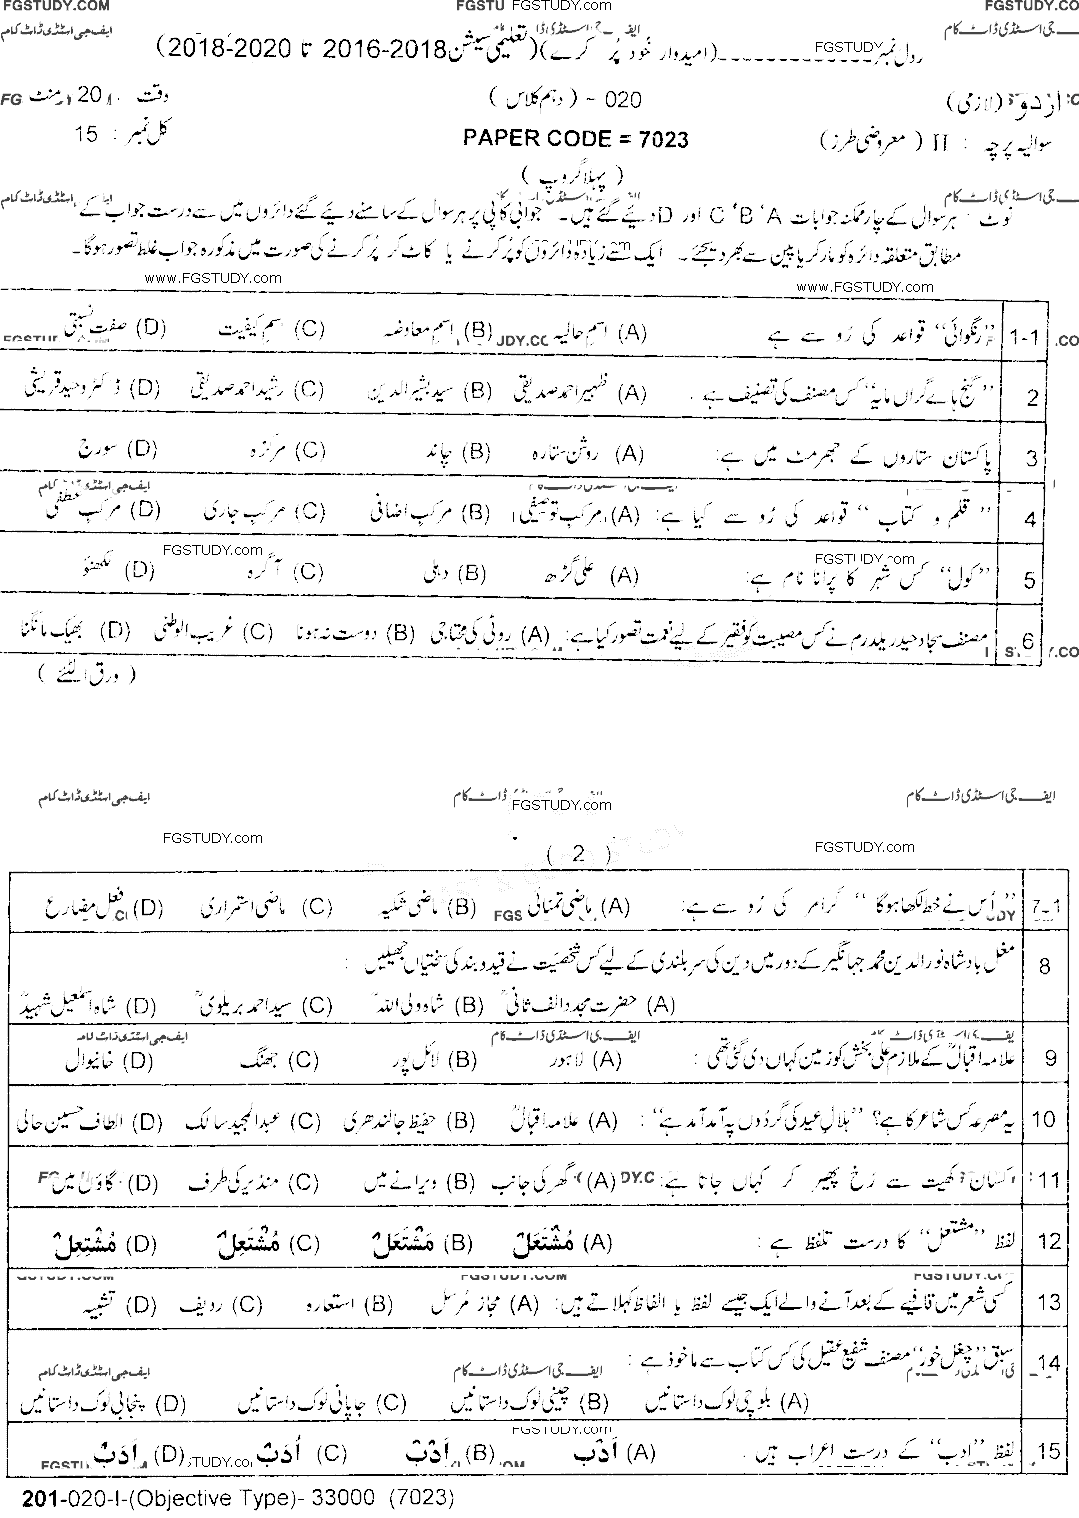 FGSTUDY.COM FGSTU FGSTUDY.com FGSTUDY.CO
ایف جی اسٹڈی ڈاٹ کام ایف جی اسٹڈی ڈا جی اسٹڈی ڈاٹ کام
رول نمبر FGSTUDY (امیدوار خود پُر کرے) (تعلیمی سیشن 2018-2016 تا 2020-2018)
اردو (لازمی) 020 - (دہم کلاس) وقت 20 منٹ FG
سوالیہ پرچہ : II (معروضی طرز) PAPER CODE = 7023 کل نمبر : 15
(پہلا گروپ)
جی اسٹڈی ڈاٹ کام ایف جی اسٹڈی ڈاٹ کام
نوٹ ہر سوال کے چار ممکنہ جوابات A ،B ،C اور D دیئے گئے ہیں۔ جوابی کاپی پر ہر سوال کے سامنے دیئے گئے دائروں میں سے درست جواب کے
مطابق متعلقہ دائرہ کو مارکر یا پین سے بھر دیجئے۔ ایک سے زیادہ دائروں کو پُر کرنے یا کاٹ کر پُر کرنے کی صورت میں مذکورہ جواب غلط تصور ہوگا۔
www.FGSTUDY.com www.FGSTUDY.com
1-1 "رنگوائی" قواعد کی رُو سے ہے (A) اسم حالیہ (B) اسم معاوضہ (C) اسم کیفیت (D) صفت نسبتی
2 "گنج ہائے گراں مایہ" کس مصنف کی تصنیف ہے : (A) ظہیر احمد صدیقی (B) سید بشیر الدین (C) رشید احمد صدیقی (D) ڈاکٹر وحید قریشی
3 پاکستان ستاروں کے جھرمٹ میں ہے: (A) روشن ستارہ (B) چاند (C) مرکزہ (D) سورج
ایف جی اسٹڈی ڈاٹ کام
4 "قلم و کتاب" قواعد کی رُو سے کیا ہے: (A) مرکب توصیفی (B) مرکب اضافی (C) مرکب جاری (D) مرکب عطفی
FGSTUDY.com FGSTUDY.com
5 "کول" کس شہر کا پرانا نام ہے: (A) علی گڑھ (B) دہلی (C) آگرہ (D) لکھنؤ
6 مصنف سجاد حیدر یلدرم نے کس مصیبت کو فقیر کے لیے نعمت تصور کیا ہے: (A) روٹی کی محتاجی (B) دوست نہ ہونا (C) غریب الوطنی (D) بھیک مانگنا
(ورق الٹئے)
ایف جی اسٹڈی ڈاٹ کام ڈاٹ کام ایف جی اسٹڈی ڈاٹ کام
FGSTUDY.com
FGSTUDY.com FGSTUDY.com
( 2 )
7-1 "اُس نے خط لکھا ہوگا" گرامر کی رُو سے ہے: (A) ماضی تمنائی (B) ماضی شکیہ (C) ماضی استمراری (D) فعل مضارع
8 مغل بادشاہ نورالدین محمد جہانگیر کے دور میں دین کی سربلندی کے لیے کس شخصیت نے قید و بند کی سختیاں جھیلیں :
(A) حضرت مجدد الف ثانیؒ (B) شاہ ولی اللہؒ (C) سید احمد بریلویؒ (D) شاہ اسمٰعیل شہیدؒ
ایف جی اسٹڈی ڈاٹ کام
9 علامہ اقبالؒ کے ملازم علی بخش کو زمین کہاں دی گئی تھی : (A) لاہور (B) لائل پور (C) جھنگ (D) خانیوال
10 یہ مصرعہ کس شاعر کا ہے؟ "ہلالِ عید کی گردوں پہ آمد آمد ہے": (A) علامہ اقبالؒ (B) حفیظ جالندھری (C) عبدالمجید سالک (D) الطاف حسین حالی
11 کسان کھیت سے رُخ پھیر کر کہاں جاتا ہے: (A) گھر کی جانب (B) ویرانے میں (C) منڈیر کی طرف (D) گاؤں میں
12 لفظ "مشتعل" کا درست تلفظ ہے : (A) مُشْتَعَلْ (B) مَشْتَعَلْ (C) مُشْتَعِلْ (D) مُشْتِعِلْ
FGSTUDY.COM
13 کسی شعر میں قافیے کے بعد آنے والے ایک جیسے لفظ یا الفاظ کہلاتے ہیں: (A) مجاز مُرسل (B) استعارہ (C) ردیف (D) تشبیہ
14 سبق "چغل خور" مصنف شفیع عقیل کی کس کتاب سے ماخوذ ہے :
ایف جی اسٹڈی ڈاٹ کام ایف جی اسٹڈی ڈاٹ کام
(A) بلوچی لوک داستانیں (B) چینی لوک داستانیں (C) جاپانی لوک داستانیں (D) پنجابی لوک داستانیں
FGSTUDY.com
15 لفظ "ادب" کے درست اعراب ہیں : (A) اَدْبْ (B) اَدْبْ (C) اُدَبْ (D) اَدَبْ
201-020-I-(Objective Type)- 33000 (7023)